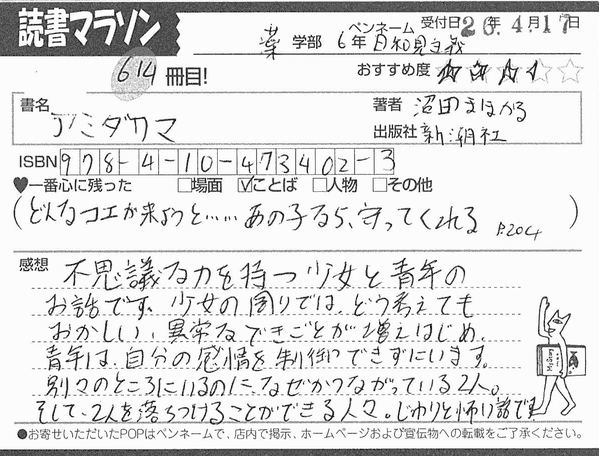 読書マラソン
受付日 26.4月17日
ペンネーム
薬 学部 6年 日和見主義
614 冊目!
おすすめ度 ★★★☆☆
書名
アミダサマ
著者 沼田まほかる
出版社 新潮社
ISBN 978-4-10-473402-3
♥一番心に残った □場面 ☑ことば □人物 □その他
(どんなコエが来ようと……あの子なら、守ってくれる P.204)
感想
不思議な力を持つ少女と青年の
お話です。少女の周りでは、どう考えても
おかしい、異常なできごとが増えはじめ、
青年は、自分の感情を制御できずにいます。
別々のところにいるのに、なぜかつながっている2人。
そして、2人を落ちつけることができる人々。じわりと怖い話です。
●お寄せいただいたPOPはペンネームで、店内で掲示、ホームページおよび宣伝物への転載をご了承ください。